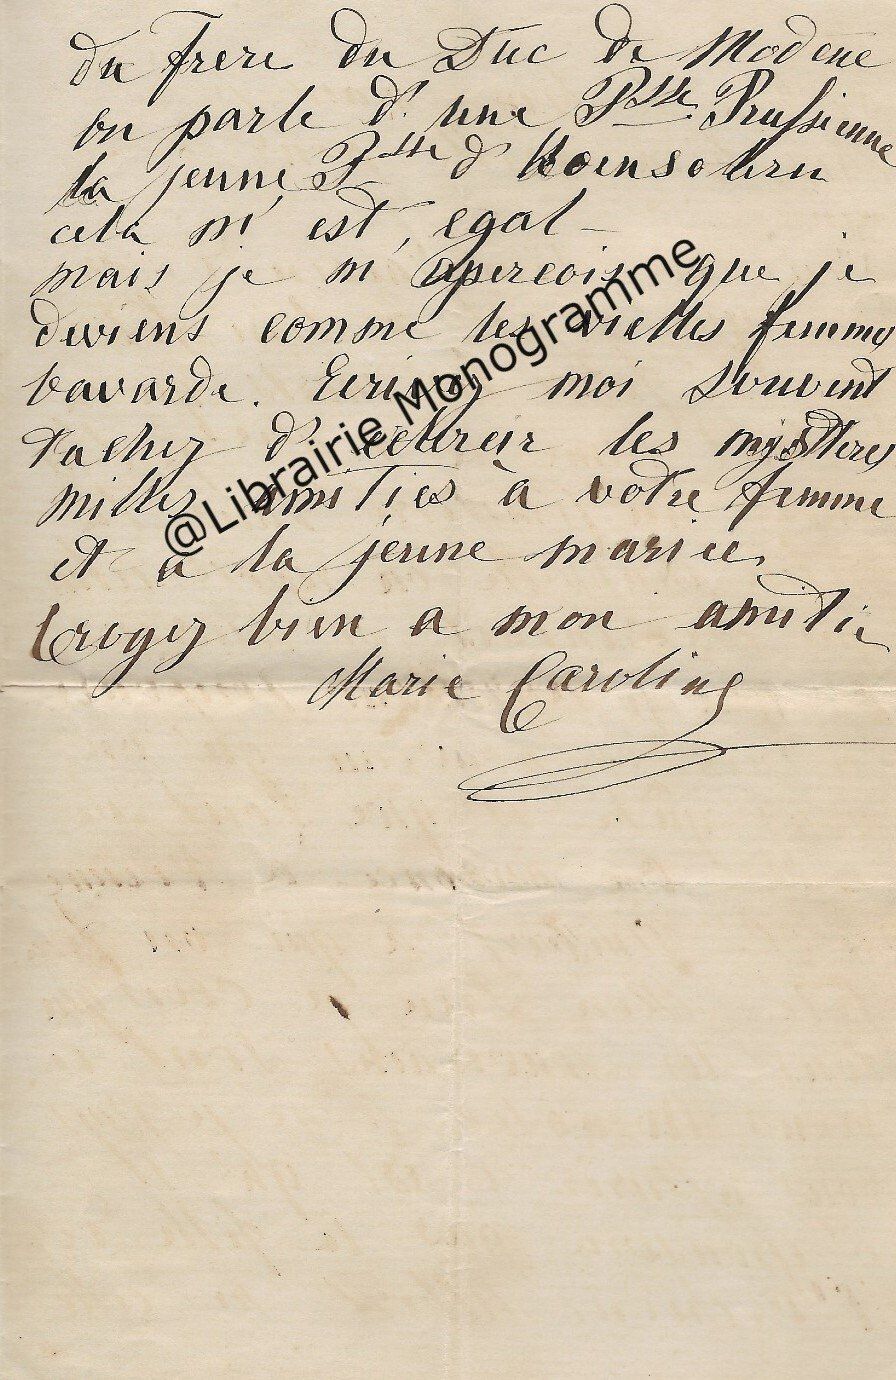 du frere du Duc de Modene
on parle d'une Psse Prussienne
la jeune Psse d'Hoensolern
cela m'est egal –
mais je m'aperçois que je
deviens comme les vielles femmes
bavarde. Ecrivez moi souvent
tachez d'eclercir les mysteres
milles amities à votre femme
et a la jeune mariee.
Croyez bien a mon amitie
Marie Caroline
@Librairie Monogramme